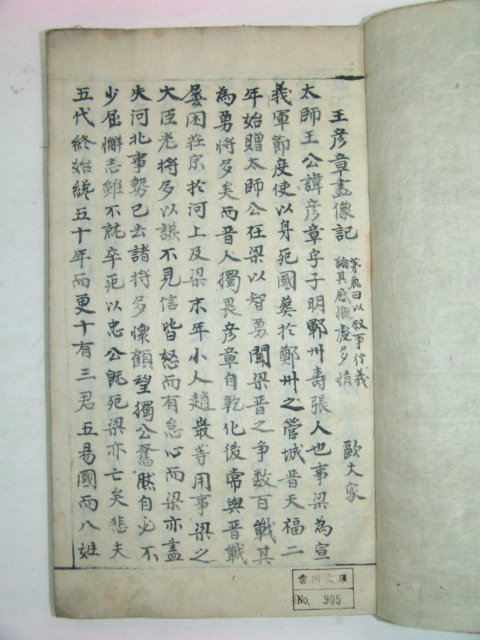 王彦章畫像記
茅鹿曰以敍事行義
論其感慨處多情
歐大家
太師王公諱彦章字子明鄆州壽張人也事梁為宣
義軍節度使以身死國葬於鄭州之管城晋天福二
年始贈太師公在梁以智勇聞梁晋之争数百戰其
為勇將多矣而晋人獨畏彦章自乾化後常與晋戰
屡困莊宗於河上及梁末年小人趙巖等用事梁之
大臣老將多以讒不見信皆怒而有怠心而梁亦盡
失河北事勢已去諸將多懷顧望獨公奮然自必不
少屈懈志雖不就卒死以忠公既死梁亦亡矣悲夫
五代終始纔五十年而更十有三君五易國而八姓
No. 905